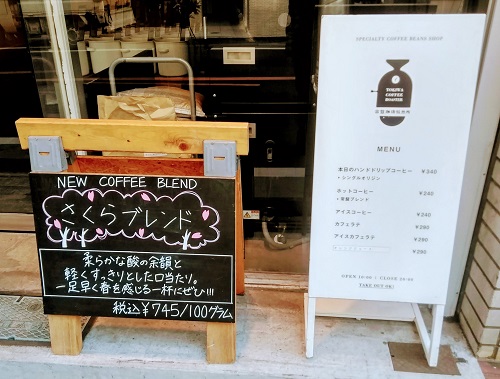 NEW COFFEE BLEND
さくらブレンド
柔らかな酸の余韻と
軽くすっきりとした口当たり。
一足早く春を感じる一杯にぜひ!!!
税込¥745/100グラム
SPECIALTY COFFEE BEANS SHOP
TOKIWA
COFFEE
ROASTER
MENU
本日のハンドドリップコーヒー ¥340
• シングルオリジン
ホットコーヒー ¥240
• 常盤ブレンド
アイスコーヒー ¥240
カフェラテ ¥290
アイスカフェラテ ¥290
¥290
TAKE OUT OK!